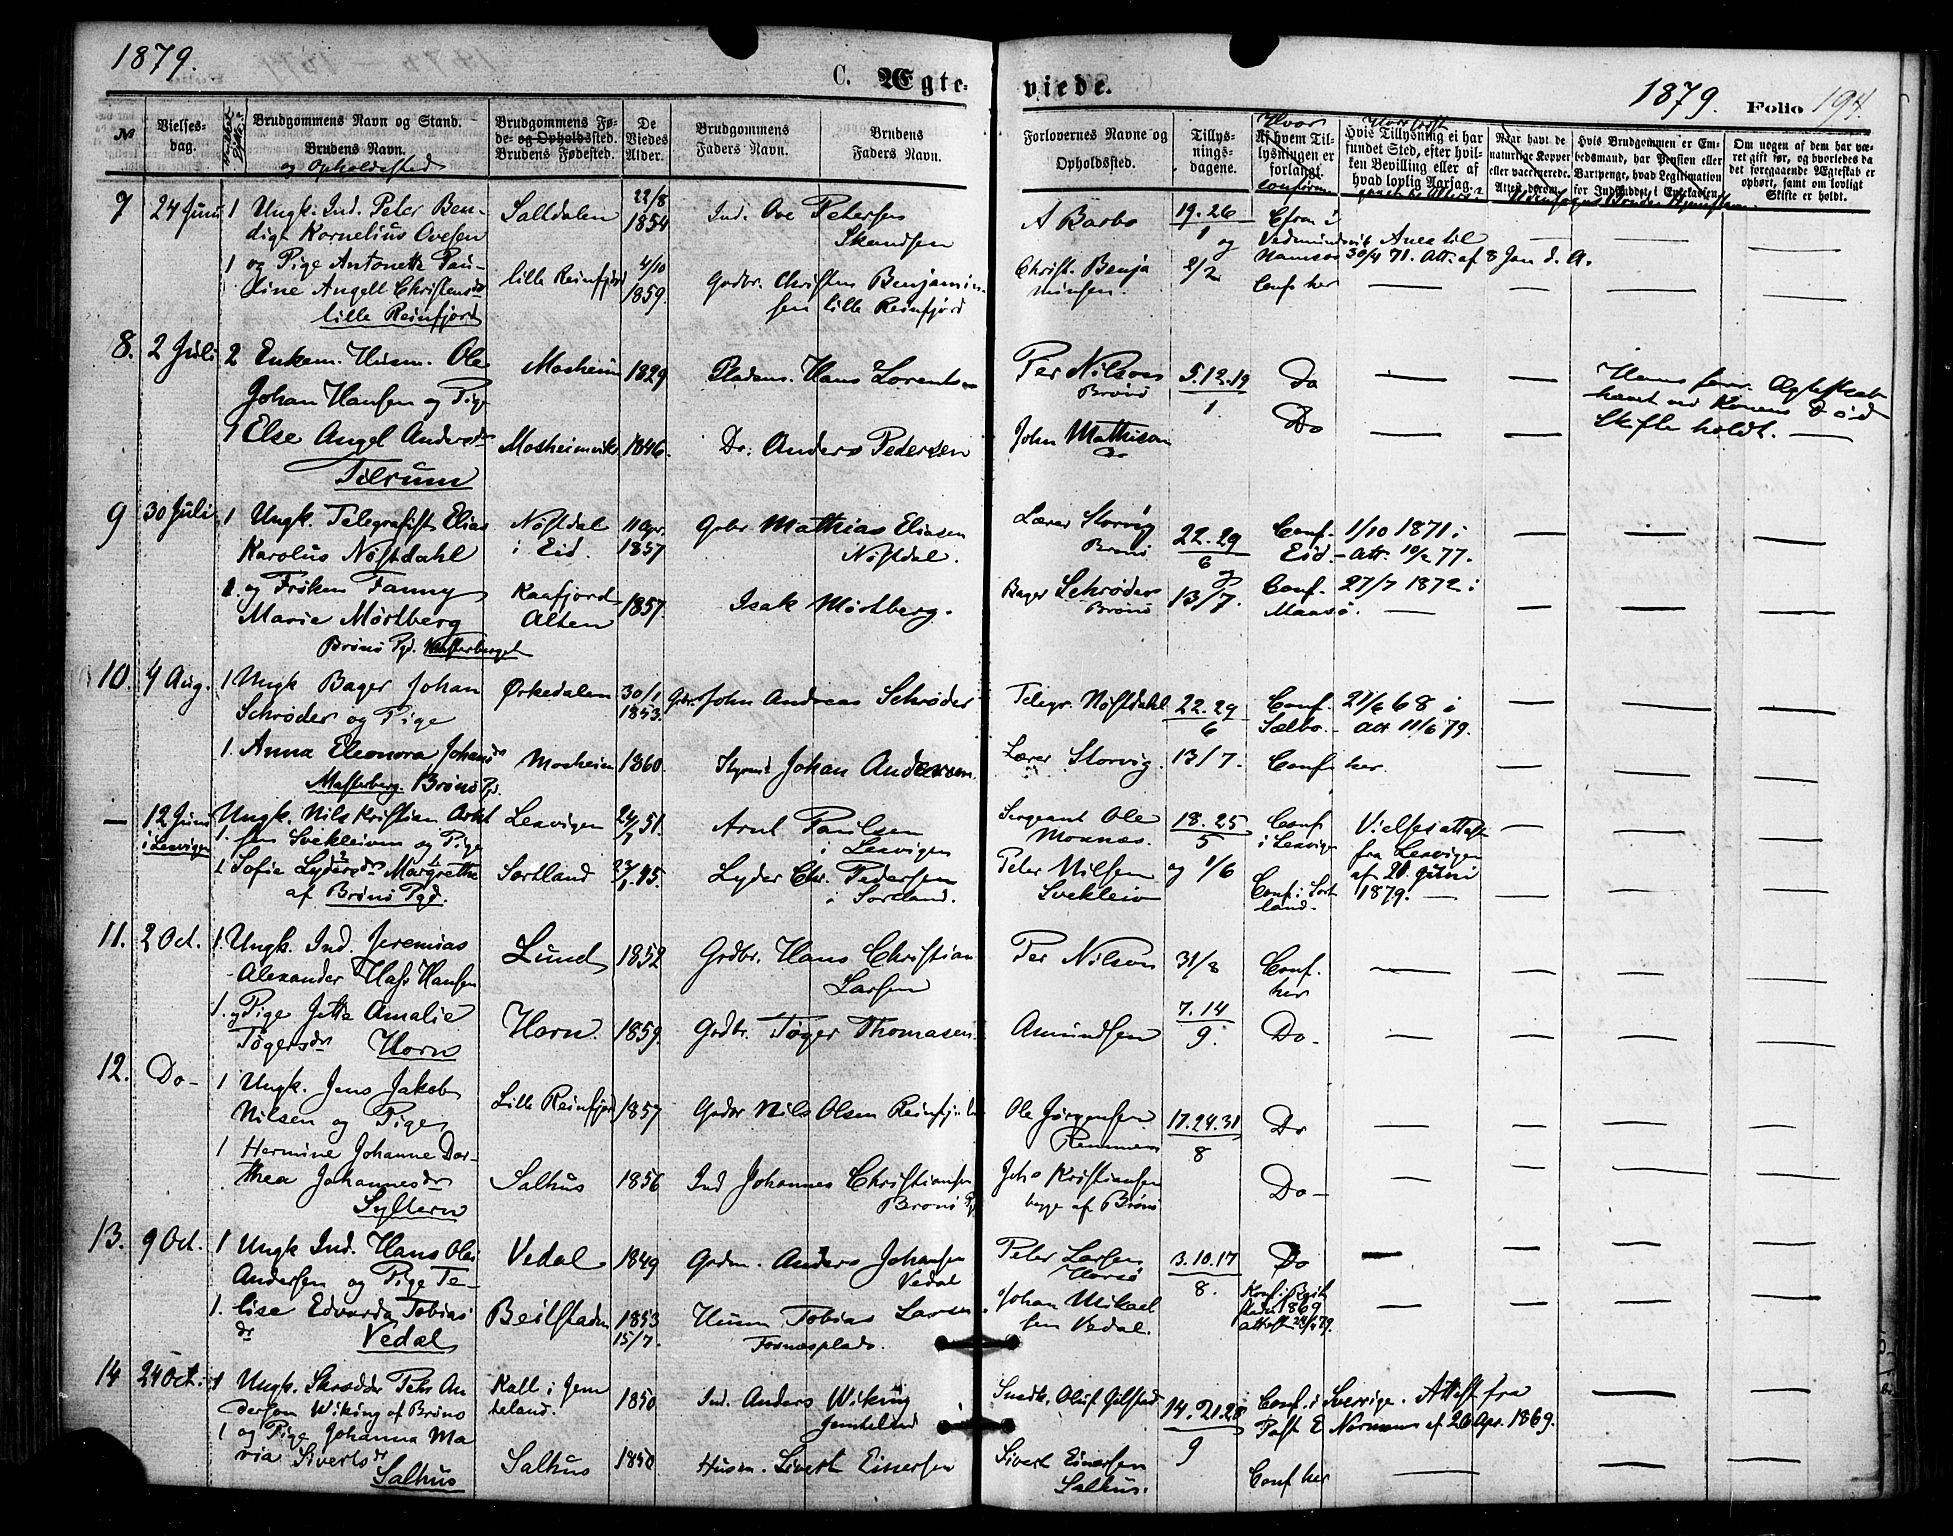 1879.
C. Ægte-
viede.
1879. Folio 194.
№
Vielses-
dag.
Brudgommens Navn og Stand.
Brudens Navn.
og Opholdssted
Brudgommens Fø-
de- og Opholdssted.
Brudens Fødested.
De
Viedes
Alder.
Brudgommens
Faders Navn.
Brudens
Faders Navn.
Forlovernes Navne og
Opholdssted.
Tillys-
nings-
dagene.
Hvor
Af hvem Til-
lysningen er
forlangt.
confirm
Hvis Tillysning ei har
fundet Sted, efter hvil-
ken Bevilling eller af
hvad lovlig Aarsag.
Naar havt de
naturlige Kopper
eller vaccinerede.
Attest derom.
Hvis Brudgommen er Em-
bedsmand, har Pension eller
Vartpenge, hvad Legitimation
for Indskuddet i Enkekassen
Om nogen af dem har væ-
ret gift før, og hvorledes da
det foregaaende Ægteskab er
ophørt, samt om lovligt
Skifte er holdt.
7 24 Juni 1 Ungk. Ind. Peter Ben-
digt Kornelius Ovesen
Saltdalen 22/8 1854
Ind. Ove Petersen
Skandsen
A Barbo
19. 26
1 og
2/2
Cfrm i
Namsos 30/4 71. Att. af 8 Jan d. A.
1 og Pige Antonette Pau-
line Angell Christensdr
lille Reinfjord
lille Reinfjord 4/10 1859.
Gdbr. Christen Benjamin-
sen lille Reinfjord
Christ. Benja
minsen.
Conf her
8. 2 Juli 2 Enkem. Husm. Ole
Johan Hansen og Pige
Mosheim 1829
Pladsm. Hans Lorents
Per Nilsen
Brønø
5. 12. 19
1.
Do
Hans forr. Ægteskab
hævet ved Konens Død
Skifte holdt.
1 Else Angel Andersdr
Tilrum
Mosheimvik 1846.
Do. Anders Pedersen
John Mathisen
Do
Do
9 30 Juli 1 Ungk. Telegrafist Elias
Karolus Nøstdahl
Nøstdal
i Eid.
11 Apr.
1857
Gdbr Mathias Eliasen
Nøstdal.
Lærer Storvig
Brønø
22. 29
6
Conf. 1/10 1871 i
Eid - Att. 10/2 77.
1 og Frøken Fanny
Marie Mørtberg
Brønø Pgd.
Kaafjord
Alten
1857.
Isak Mørtberg.
Bager Schrøder
Brønø
13/7.
Conf. 27/7 1872 i
Maasø.
10. 4 Aug. 1 Ungk Bager Johan
Schrøder og Pige
Ørkedalen 30/1 1853.
Gdbr. John Andreas Schrøder
Telegr. Nøstdahl
22. 29
6
Conf. 21/6 68 i
Sælbo. - Att 11/6 79.
1. Anna Eleonora Johansdr
Brønø Pgd.
Mosheim 1860.
Styrmd Johan Andersen.
Lærer Storvig.
13/7.
Conf her.
— 12 Juni
i Lexvigen
Ungk. Nils Kristian Arnt
1. sen Svekleiven og Pige
Lexvigen
Arnt Paulsen
i Lexvigen
Sergeant Ole
Moxnæs.
18. 25
5
Conf
i Lexvigen
Vielsesattest
fra Lexvigen
af 21 Juni
1879.
1 Sofie Lydersdr Margrethe
af Brønø Pgd.
Sortland
Lyder Chr. Pedersen
i Sortland.
Peter Nilsen
Svekleiv
og 1/6
Conf. i Sort
land.
11. 2 Oct. 1. Ungk. Ind. Jeremias
Alexander Hass Hansen
Lund 1852
Gdbr. Hans Christian
Larsen
Per Nilsen
31/8
Conf.
her
1. og Pige Jette Amalie
Tøgersdr Horn
Horn. 1859.
Gdbr. Tøger Thomasen
Amundsen
7. 14
9.
Do
12. Do - 1 Ungk. Jens Jakob
Nilsen og Pige
Lille Reinfjord 1857
Gdbr Nils Olsen Reinfjord
Ole Jørgensen
Remmen
17. 24. 31
8
Do
1 Hermine Johanne Dor-
thea Johannesdr
Syltern
Salhus 1856
Ind Johannes Christiansen
Brønø Pgd
Johs Kristiansen
begge af Brønø
Do -
13. 9 Oct. 1 Ungk Ind. Hans Olai
Andersen og Pige Te-
Vedal 1849
Gdm. Anders Johansen
Vedal
Peter Larsen
Horsø
3. 10. 17
8.
Do
1. lise Edvarda Tobias
dr Vedal
Beilstaden 1853
15/7.
Husm Tobias Larsen
Fosnesplads.
Johan Mikael
sen Vedal.
Konf. i Beit
staden 1869
14 24 Oct. 1 Ungk. Skrædder Pehr An
dersen Wiking af Brønø
Kall i Jem
teland.
1850
Ind. Anders Wiking
Jemteland
Snedk. Oluf Gilstad
14. 21. 28
9
Conf. i Sverrige. Attest fra
Past E Norman af 26 Apr. 1869.
1 og Pige Johanna Ma
ria Sivertsdr
Salhus
Salhus 1850
Husm. Sivert Einersen
Sivert Einersen
Salhus.
Conf her